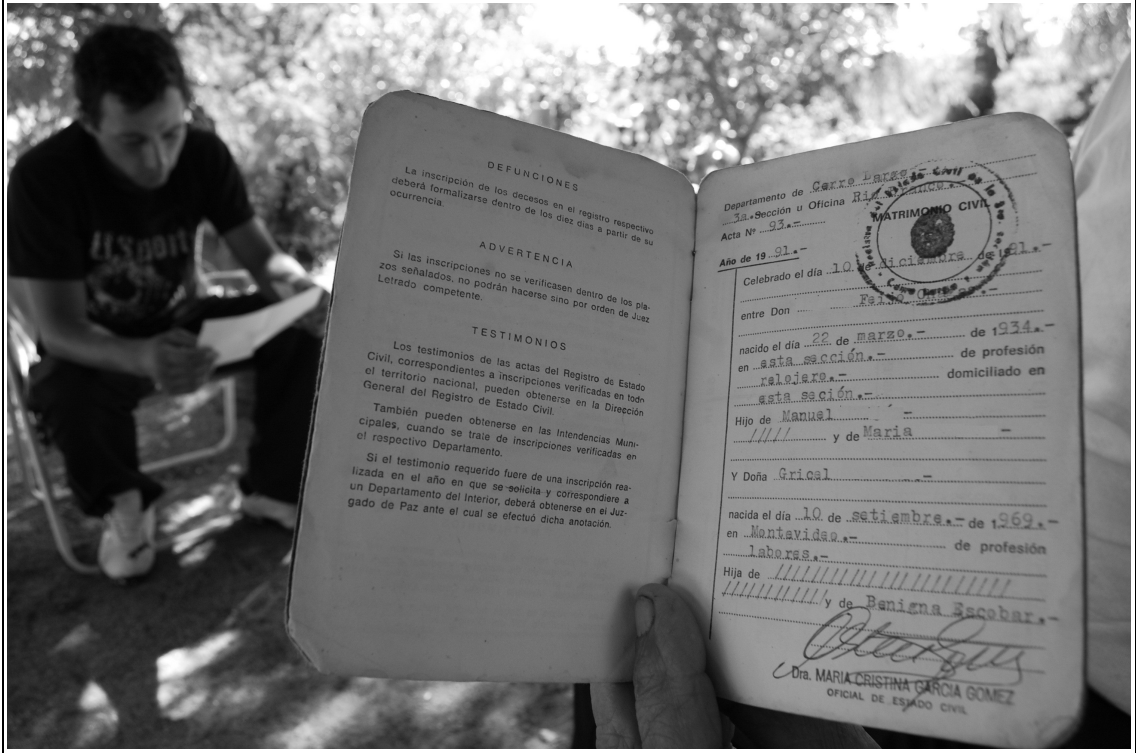 DEFUNCIONES
La inscripción de los decesos en el registro respectivo
deberá formalizarse dentro de los diez días a partir de su
ocurrencia.
ADVERTENCIA
Si las inscripciones no se verificasen dentro de los pla-
zos señalados, no podrán hacerse sino por orden de Juez
Letrado competente.
TESTIMONIOS
Los testimonios de las actas del Registro de Estado
Civil, correspondientes a inscripciones verificadas en todo
el territorio nacional, pueden obtenerse en la Dirección
General del Registro de Estado Civil.
También pueden obtenerse en las Intendencias Muni-
cipales, cuando se trate de inscripciones verificadas en
el respectivo Departamento.
Si el testimonio requerido fuere de una inscripción rea-
lizada en el año en que se solicita y correspondiere a
un Departamento del Interior, deberá obtenerse en el Juz-
gado de Paz ante el cual se efectuó dicha anotación.
Departamento de Cerro Largo.-
3a.Sección u Oficina Río Branco.-
Acta Nº 93.-
MATRIMONIO CIVIL
Año de 19 91.-
Celebrado el día 10 de diciembre de 1991.-
entre Don
nacido el día 22 de marzo.- de 1934.-
en esta sección.- de profesión
relojero.- domiciliado en
esta sación.-
Hijo de Manuel -
///// y de Maria -
Y Doña Grical .-
nacida el día 10 de setiembre.- de 1969.-
en Montevideo.- de profesión
labores.-
Hija de ////////////////////////
////////////y de Benigna Escobar.-
Dra. MARIA CRISTINA GARCIA GOMEZ
OFICIAL DE ESTADO CIVIL